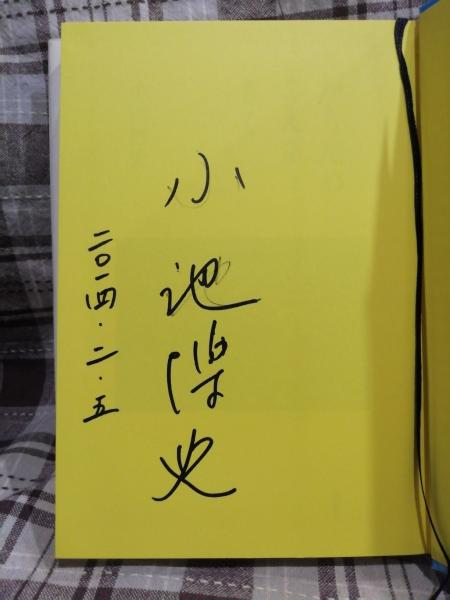 小池博史
二〇一四・二・五